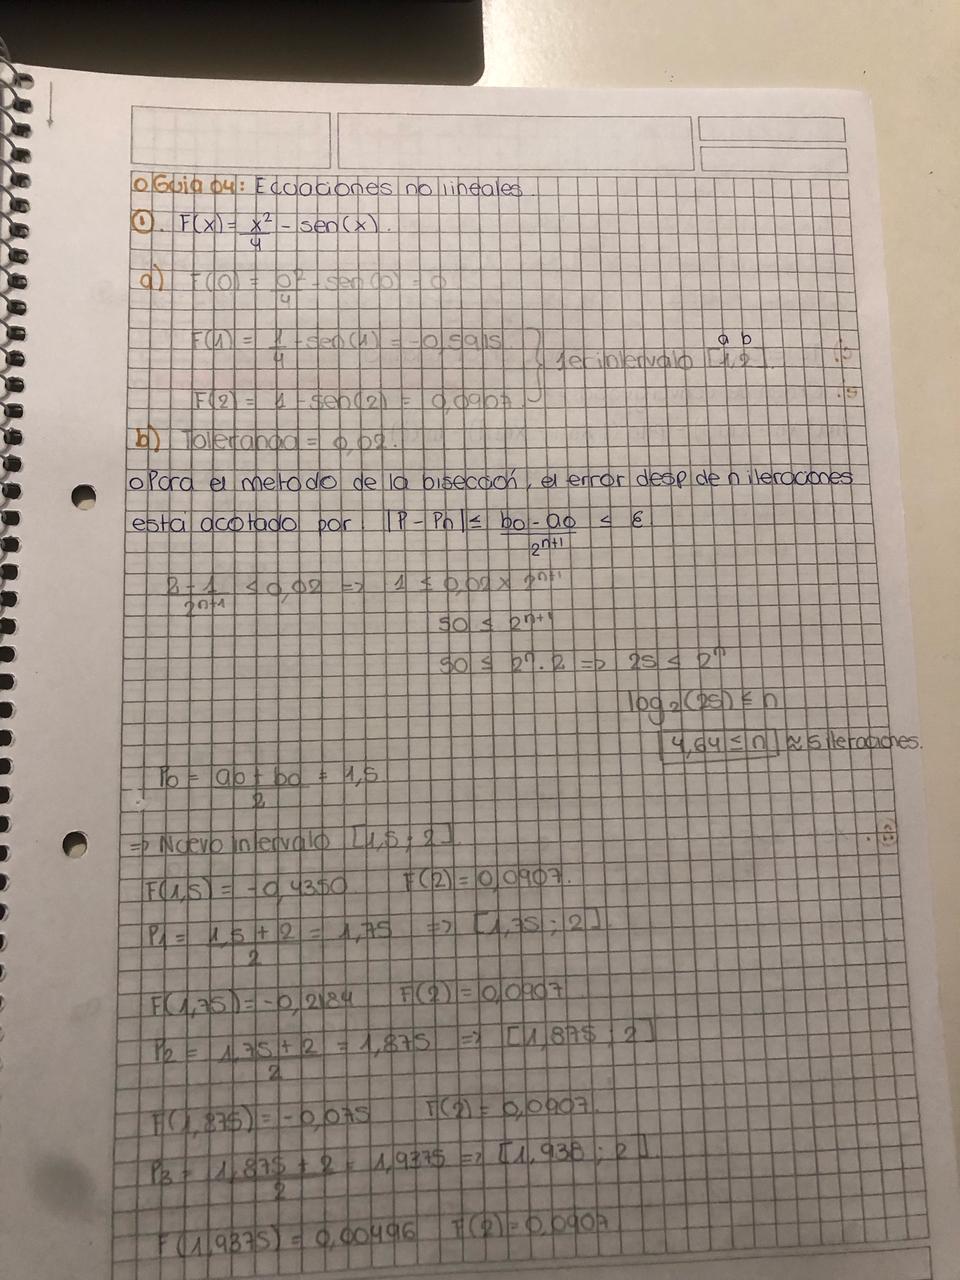 o Guia 04: Ecuaciones no lineales.
①. F(x) = x²/4 - sen(x).
a) F(0) = 0²/4 - sen(0) = 0
F(1) = 1/4 - sen(1) = -0,5915
1er intervalo [1,2].
a b
F(2) = 1 - sen(2) = 0,0907.
b) Tolerancia = 0,02.
o Para el metodo de la bisección, el error desp de n iteraciones
está acotado por |P - Pn| ≤ (b0 - a0)/2^(n+1) < ε
(2 - 1)/2^(n+1) < 0,02 => 1 ≤ 0,02 x 2^(n+1)
50 ≤ 2^(n+1)
50 ≤ 2^n . 2 => 25 ≤ 2^n
log₂(25) ≤ n
4,64 ≤ n ≈ 5 iteraciones.
P0 = (a0 + b0)/2 = 1,5
=> Nuevo intervalo [1,5 ; 2]
F(1,5) = -0,4350 F(2) = 0,0907.
P1 = (1,5 + 2)/2 = 1,75 => [1,75 ; 2].
F(1,75) = -0,2184 F(2) = 0,0907
P2 = (1,75 + 2)/2 = 1,875 => [1,875 ; 2]
F(1,875) = -0,075 F(2) = 0,0907.
P3 = (1,875 + 2)/2 = 1,9375 => [1,938 ; 2].
F(1,9375) = 0,00496 F(2) = 0,0907